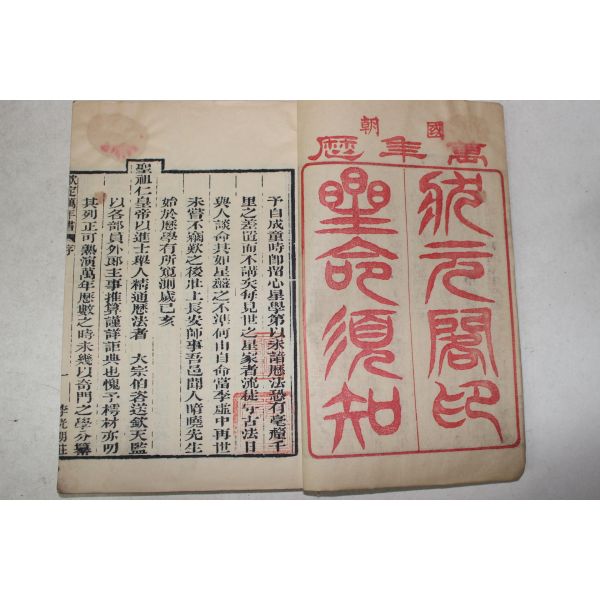 國朝
萬年歷
狀元閣印
星命須知
予自成童時卽留心星學第以未諳歷法恐有毫釐千
里之差置而不講矣每見世之星家者流徒守古法日
與人談命其如星盤之不準何由自命當李虛中再世
未嘗不竊歎之後壯上長安師事吾邑聞人瞻曉先生
始於歷學有所窺測歲己亥
聖祖仁皇帝以進士舉人精通歷法者 大宗伯咨送欽天監
以各部員外郎主事推算謹詳詎典也愧予樗材亦叨
其列正可熟演萬年歷數之時未幾以奇門之學分纂
欽定萬年書 序 一 李光明莊